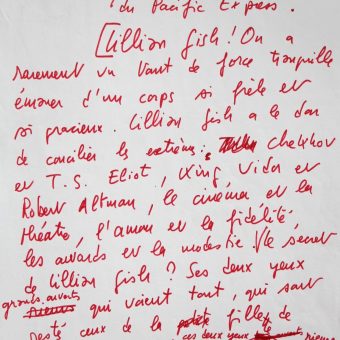 du Pacific Express.
[Lillian Gish ! On a
rarement vu tant de force tranquille
émaner d'un corps si frêle et
si gracieux. Lillian Gish a le don
de concilier les extrêmes : Chekhov
et T.S. Eliot, King Vidor et
Robert Altman, le cinéma et la
théâtre, l'amour et la fidélité,
les awards et la modestie. Le secret
de Lillian Gish ? Ses deux yeux
grands ouverts
qui voient tout, qui sont
restés ceux de la fille de
ces deux yeux